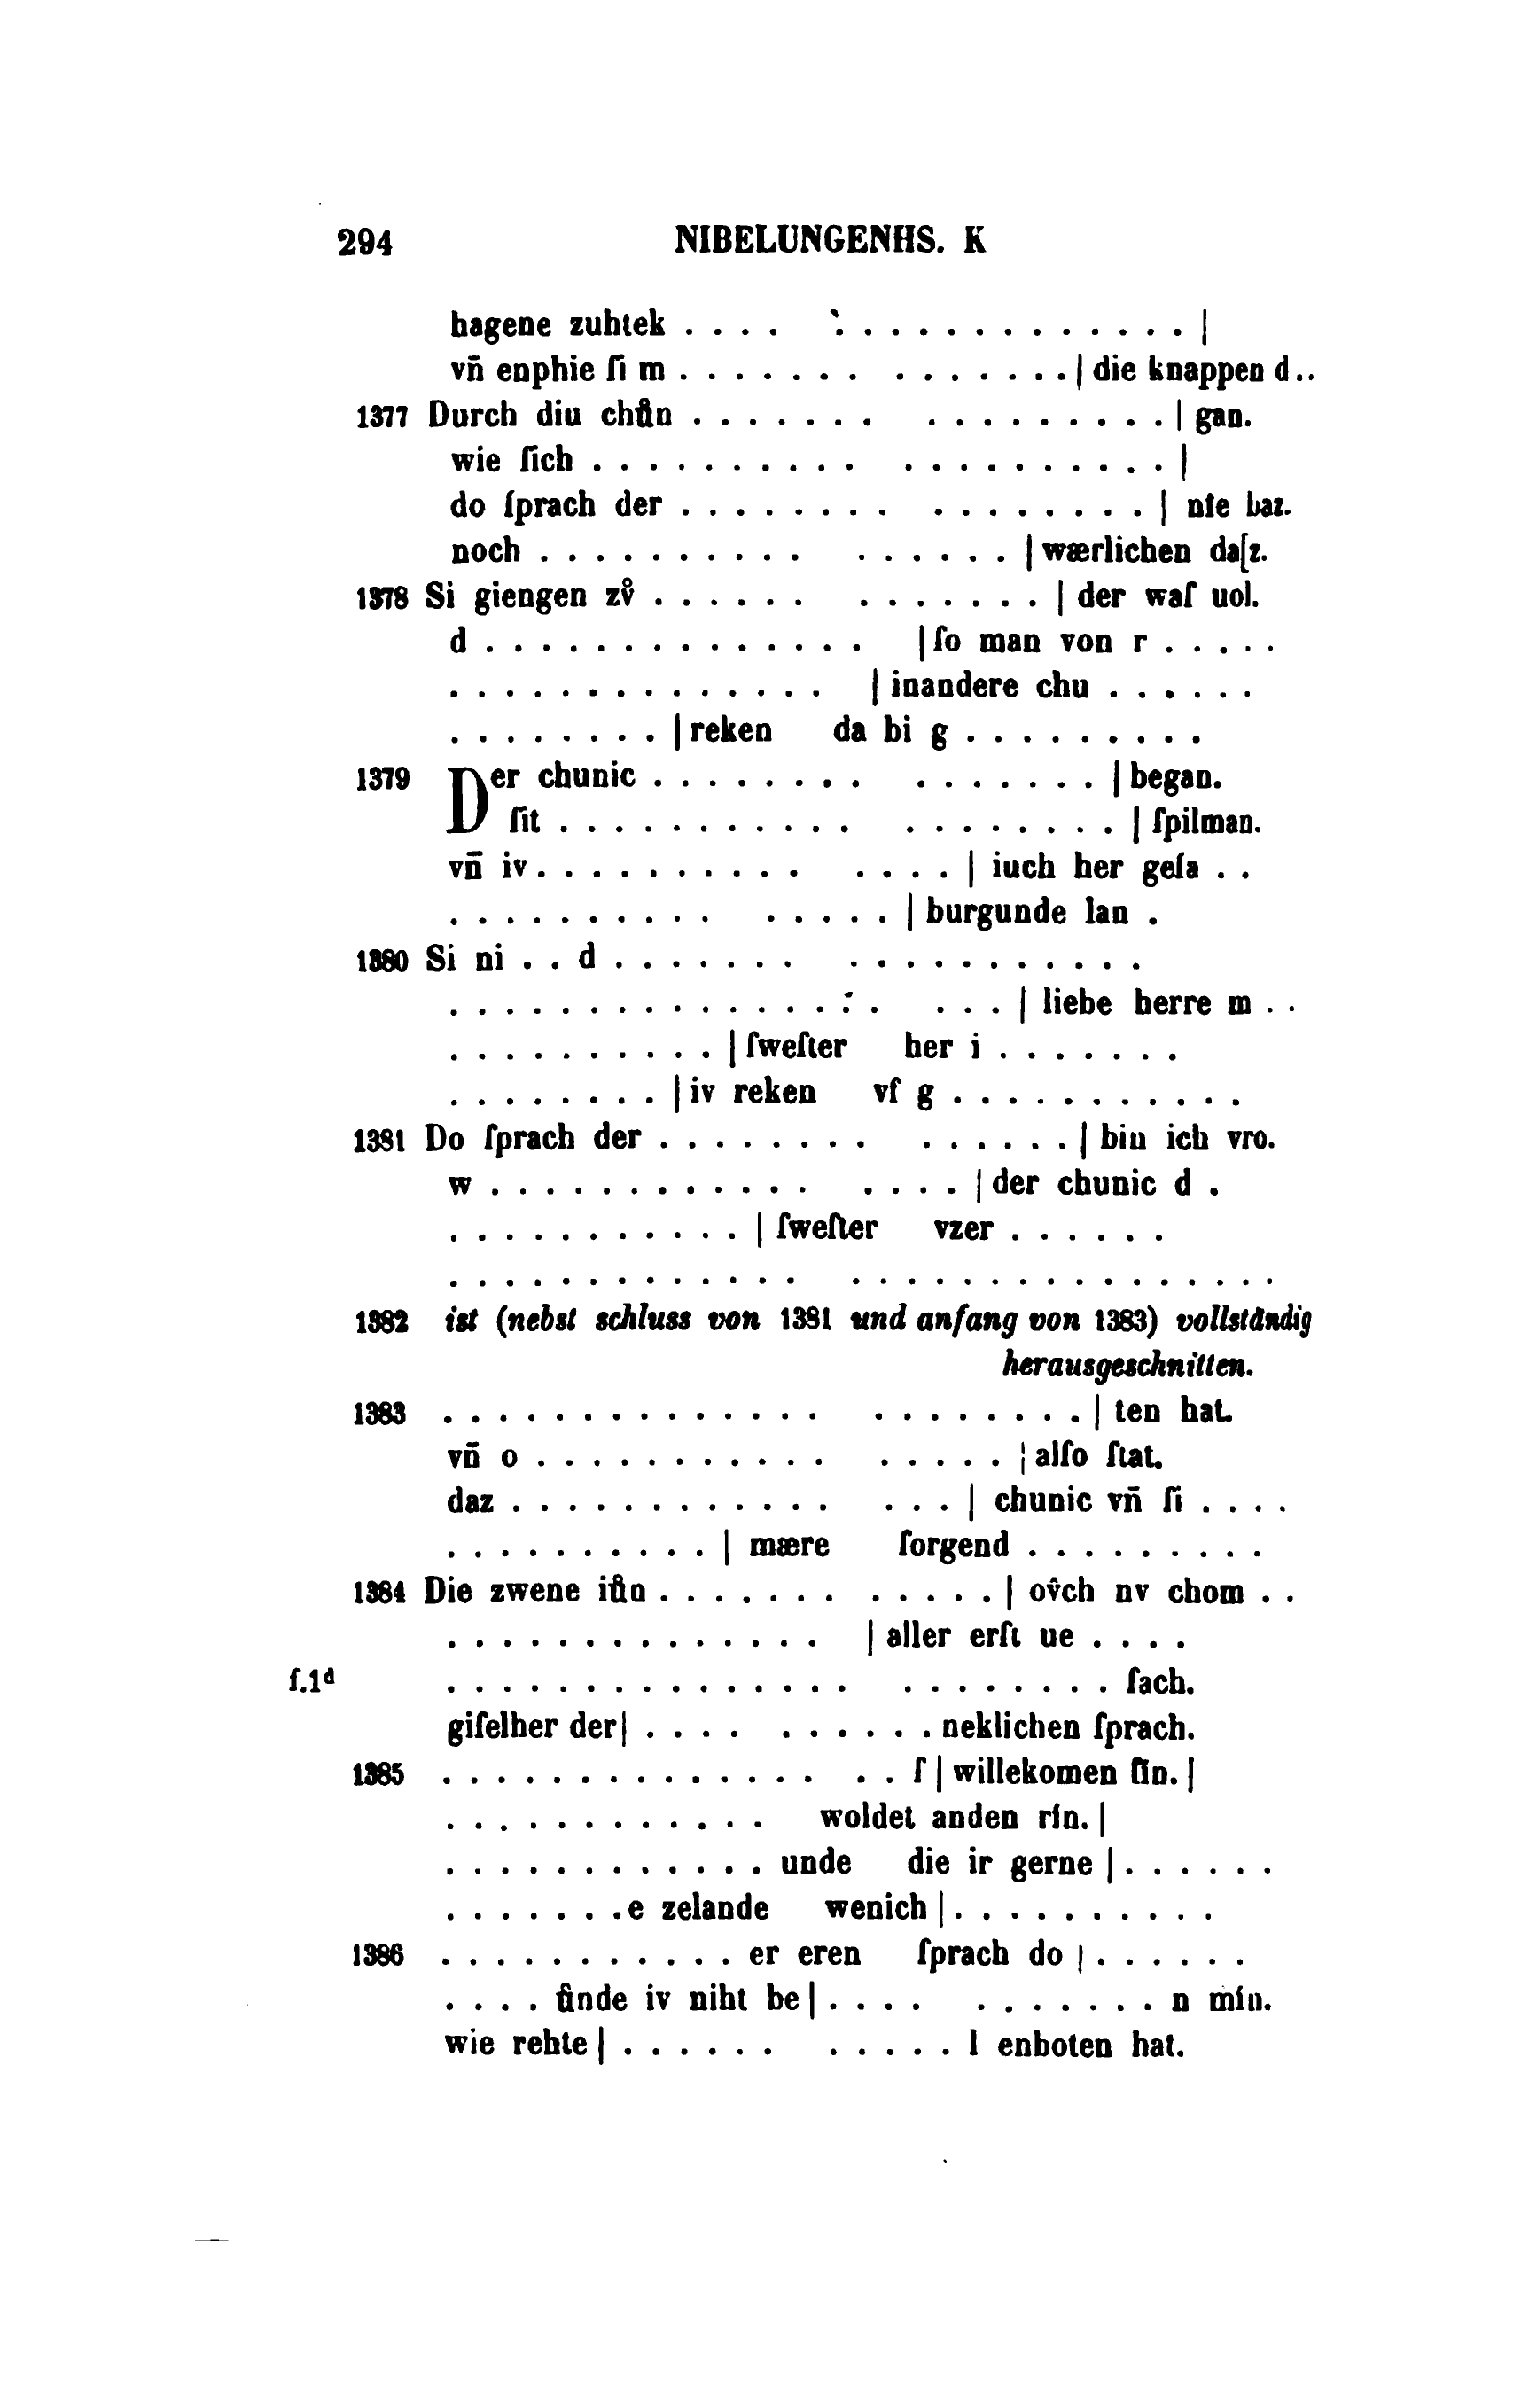 294 NIBELUNGENHS. K
hagene zuhtek . . . . . . . . . . . . . . . . . |
vn̄ enphie ſi m . . . . . . . . . . . . . . | die knappen d..
1377 Durch diu chůn . . . . . . . . . . . . . . . . | gan.
wie ſich . . . . . . . . . . . . . . . . . . . . |
do ſprach der . . . . . . . . . . . . . . . . | nte baz.
noch . . . . . . . . . . . . . . . . | wærlichen daſz.
1378 Si giengen zv̊ . . . . . . . . . . . . . | der waſ uol.
d . . . . . . . . . . . . . . | ſo man von r . . . . .
. . . . . . . . . . . . . . | inandere chu . . . . . .
. . . . . . . . | reken da bi g . . . . . . . . .
1379 Der chunic . . . . . . . . . . . . . . . | began.
ſit . . . . . . . . . . . . . . . . . . . | ſpilman.
vn̄ iv. . . . . . . . . . . . . . | iuch her geſa . .
. . . . . . . . . . . . . . . | burgunde lan .
1380 Si ni . . d . . . . . . . . . . . . . . . . . .
. . . . . . . . . . . . . . . : . . . . | liebe herre m . .
. . . . . . . . . . | ſweſter her i . . . . . . .
. . . . . . . . | iv reken vf g . . . . . . . . . . .
1381 Do ſprach der . . . . . . . . . . . . . . | bin ich vro.
w . . . . . . . . . . . . . . . . | der chunic d .
. . . . . . . . . . . | ſweſter vzer . . . . . .
. . . . . . . . . . . . . . . . . . . . . . . . . . . . .
1382 ist (nebst schluss von 1381 und anfang von 1383) vollständig
herausgeschnitten.
1383 . . . . . . . . . . . . . . . . . . . . . . | ten hat.
vn̄ o . . . . . . . . . . . . . . . . | alſo ſtat.
daz . . . . . . . . . . . . . . . | chunic vn̄ ſi . . . .
. . . . . . . . . . | mære ſorgend . . . . . . . . .
1384 Die zwene iůn . . . . . . . . . . . . | ov̂ch nv chom . .
. . . . . . . . . . . . . . | aller erſt ue . . . .
f.1ᵈ . . . . . . . . . . . . . . . . . . . . . . . ſach.
giſelher der| . . . . . . . . . . neklichen ſprach.
1385 . . . . . . . . . . . . . . . . ſ | willekomen ſin. |
. . . . . . . . . . . . woldet anden rín. |
. . . . . . . . . . . . unde die ir gerne | . . . . . .
. . . . . . . e zelande wenich | . . . . . . . . . .
1386 . . . . . . . . . . . er eren ſprach do | . . . . . .
. . . . finde iv niht be | . . . . . . . . . . . n mín.
wie rehte | . . . . . . . . . . . l enboten hat.